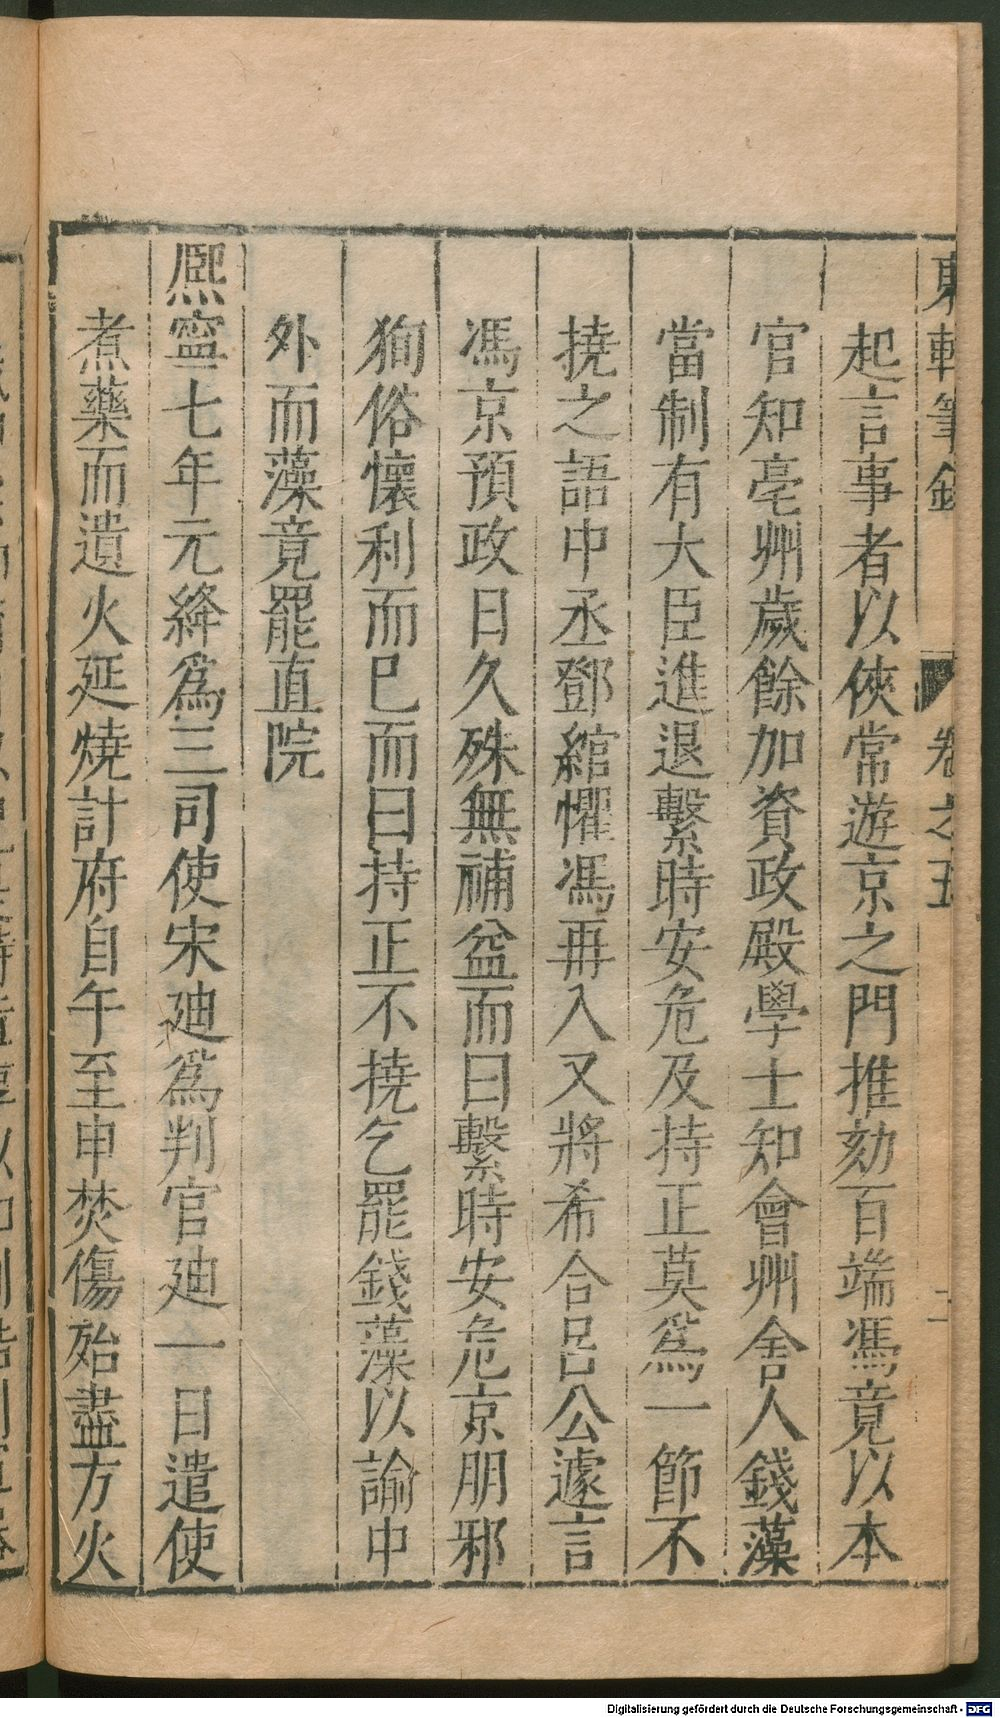 東軒筆錄 卷之五
起言事者以俠常遊京之門推劾百端馮竟以本
官知亳州歲餘加資政殿學士知會州舍人錢藻
當制有大臣進退繫時安危及持正莫爲一節不
撓之語中丞鄧綰懼馮再入又將希合呂公遽言
馮京預政日久殊無補益而曰繫時安危京朋邪
狥俗懷利而巳而曰持正不撓乞罷錢藻以諭中
外而藻竟罷直院
熈寧七年元絳爲三司使宋廸爲判官廸一日遣使
煮藥而遺火延燒計府自午至申焚傷殆盡方火
Digitalisierung gefördert durch die Deutsche Forschungsgemeinschaft - DFG